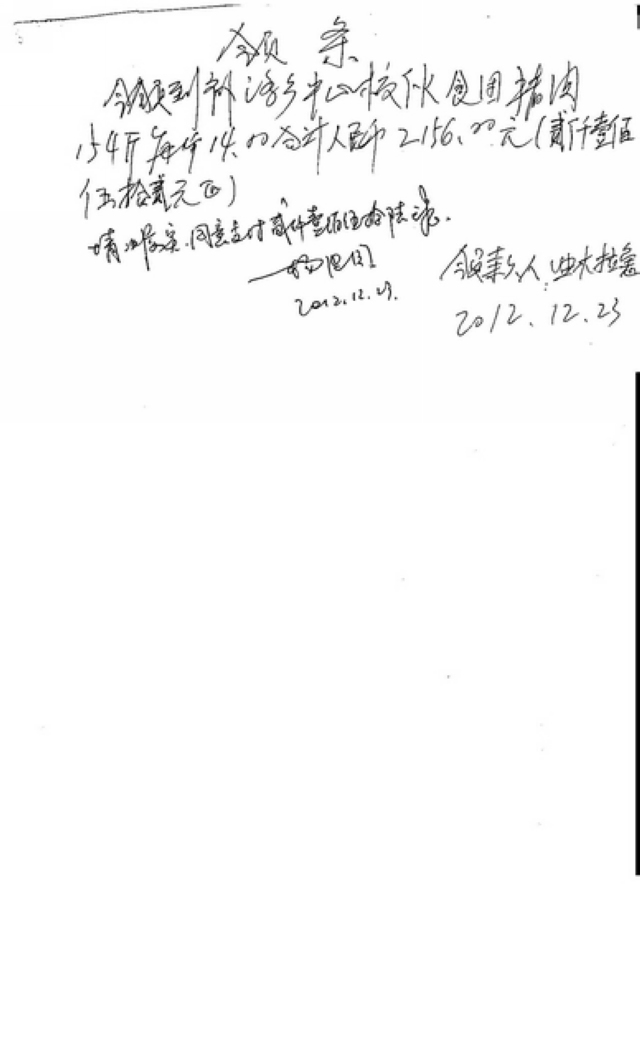 领条
今领到 乡中心校伙食团猪肉
154斤每斤14.00合计人民币2156.00元(贰仟壹佰
伍拾贰元正)
情况属实.同意支付贰仟壹佰伍拾陆元.
2012.12.23.
领款人:
2012.12.23